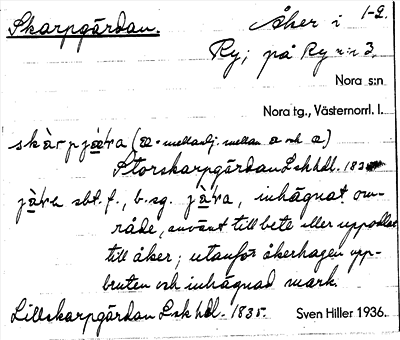 Skarpgärdan. Åker i 1-2.
Ry; på Ry n:r 3.
Nora s:n
Nora tg., Västernorrl. l.
skàrpjàra (a = mellanlj. mellan a och a)
Storskarpgärdan Lskhdl. 1835
jàra sbt. f., b. sg. jàra, inhägnat om-
råde, använt till bete eller uppodlat
till åker; utanför åkerhagen upp-
bruten och inhägnad mark.
Lillskarpgärdan Lskhdl. 1835. Sven Hiller 1936.